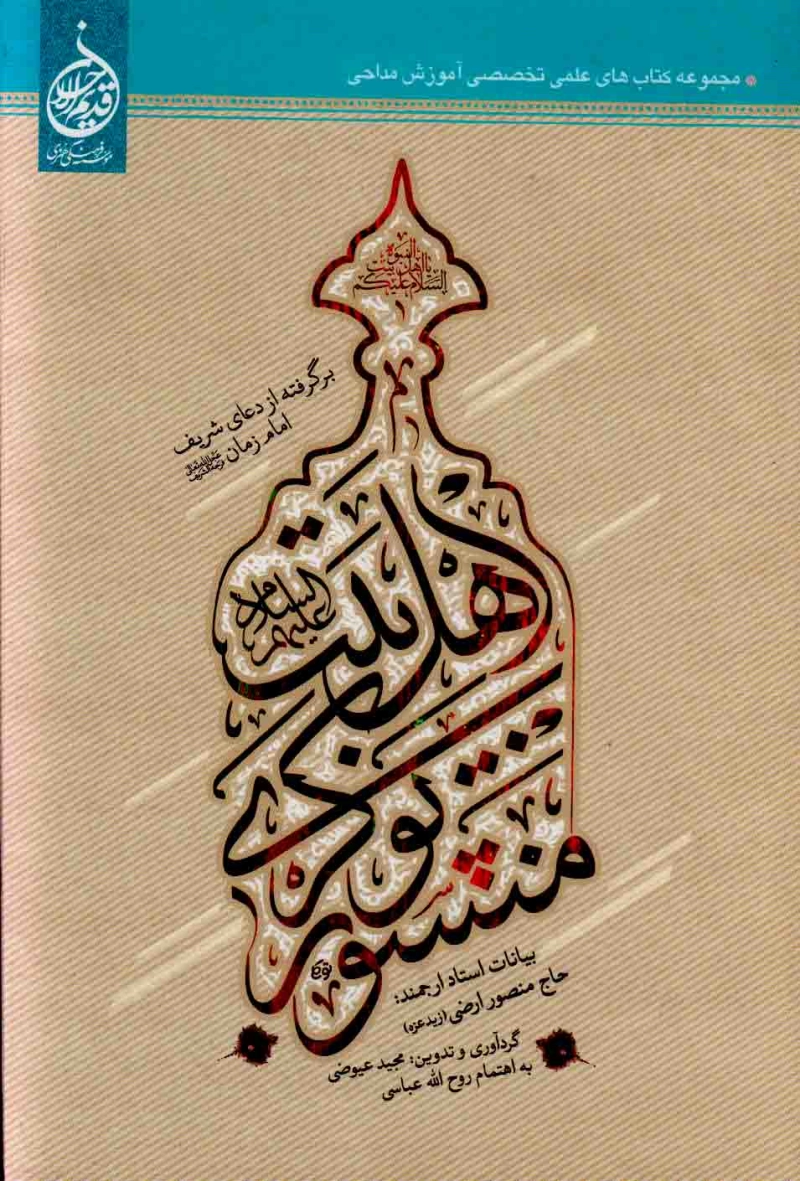 • مجموعه کتاب های علمی تخصصی آموزش مداحی
قدیم الاحسان
موسسه فرهنگی هنری
السلام علیکم
یا اهل بیت
النبوه
برگرفته از دعای شریف
امام زمان
منشور
نوکری
اهل بیت
علیهم السلام
بیانات استاد ارجمند:
حاج منصور ارضی (زیدعزه)
گردآوری و تدوین: مجید عیوضی
به اهتمام روح الله عباسی